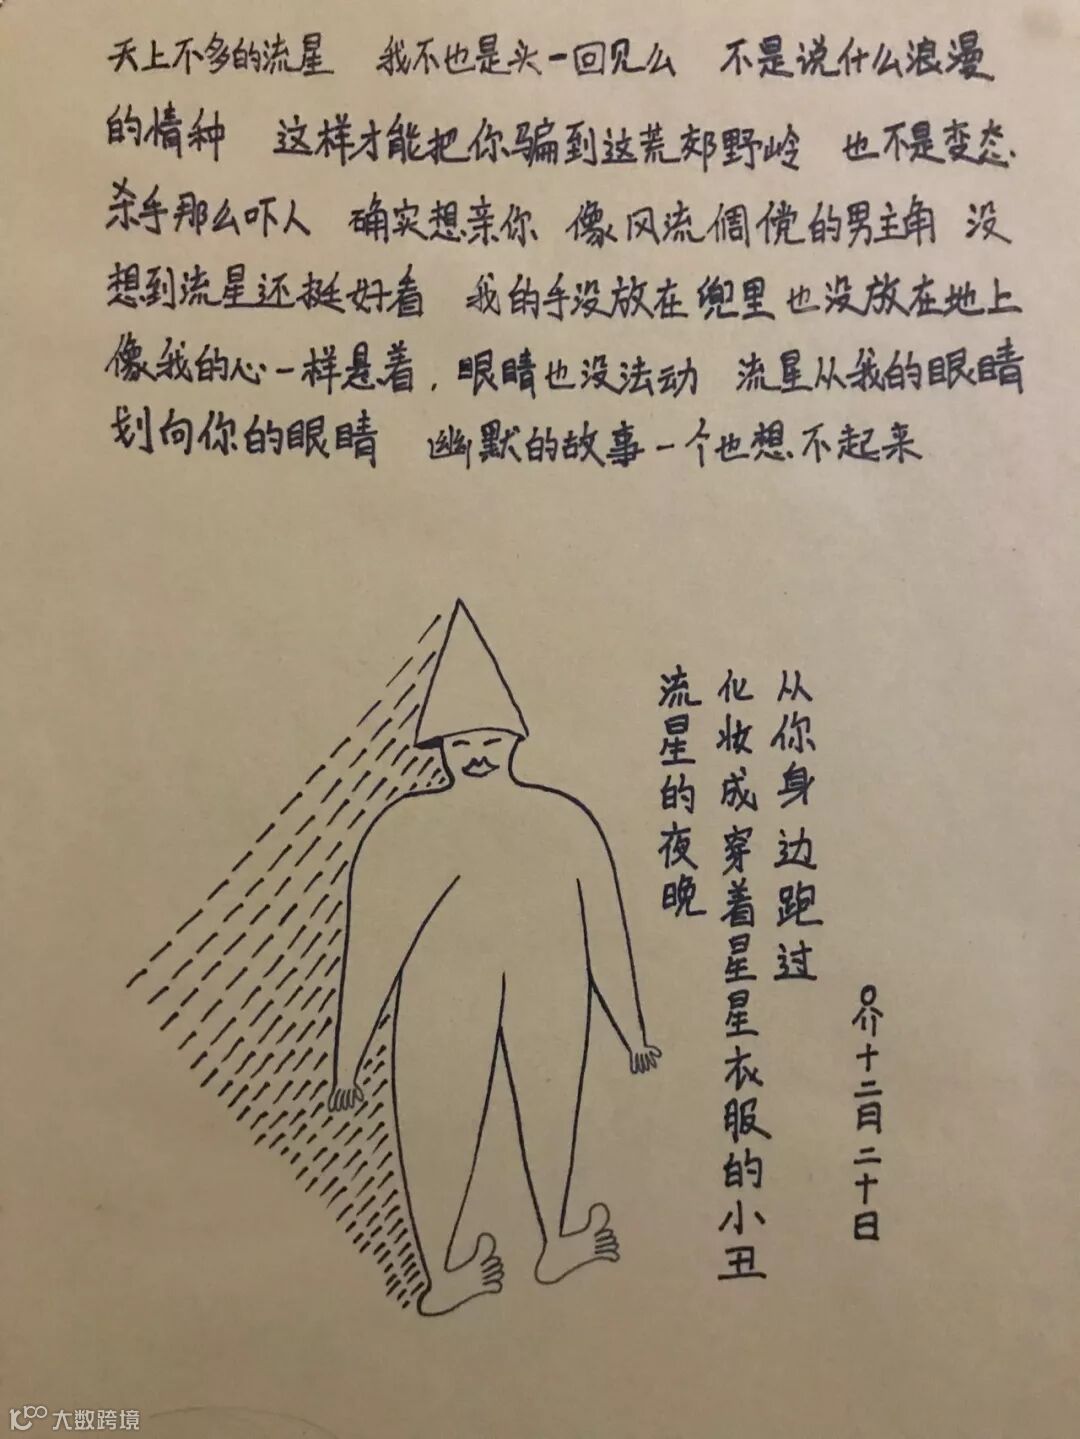 天上不多的流星 我不也是头一回见么 不是说什么浪漫
的情种 这样才能把你骗到这荒郊野岭 也不是变态
杀手那么吓人 确实想亲你 像风流倜傥的男主角 没
想到流星还挺好看 我的手没放在兜里也没放在地上
像我的心一样悬着，眼睛也没法动 流星从我的眼睛
划向你的眼睛 幽默的故事一个也想不起来
从你身边跑过
化妆成穿着星星衣服的小丑
流星的夜晚
十二月二十日
大数跨境